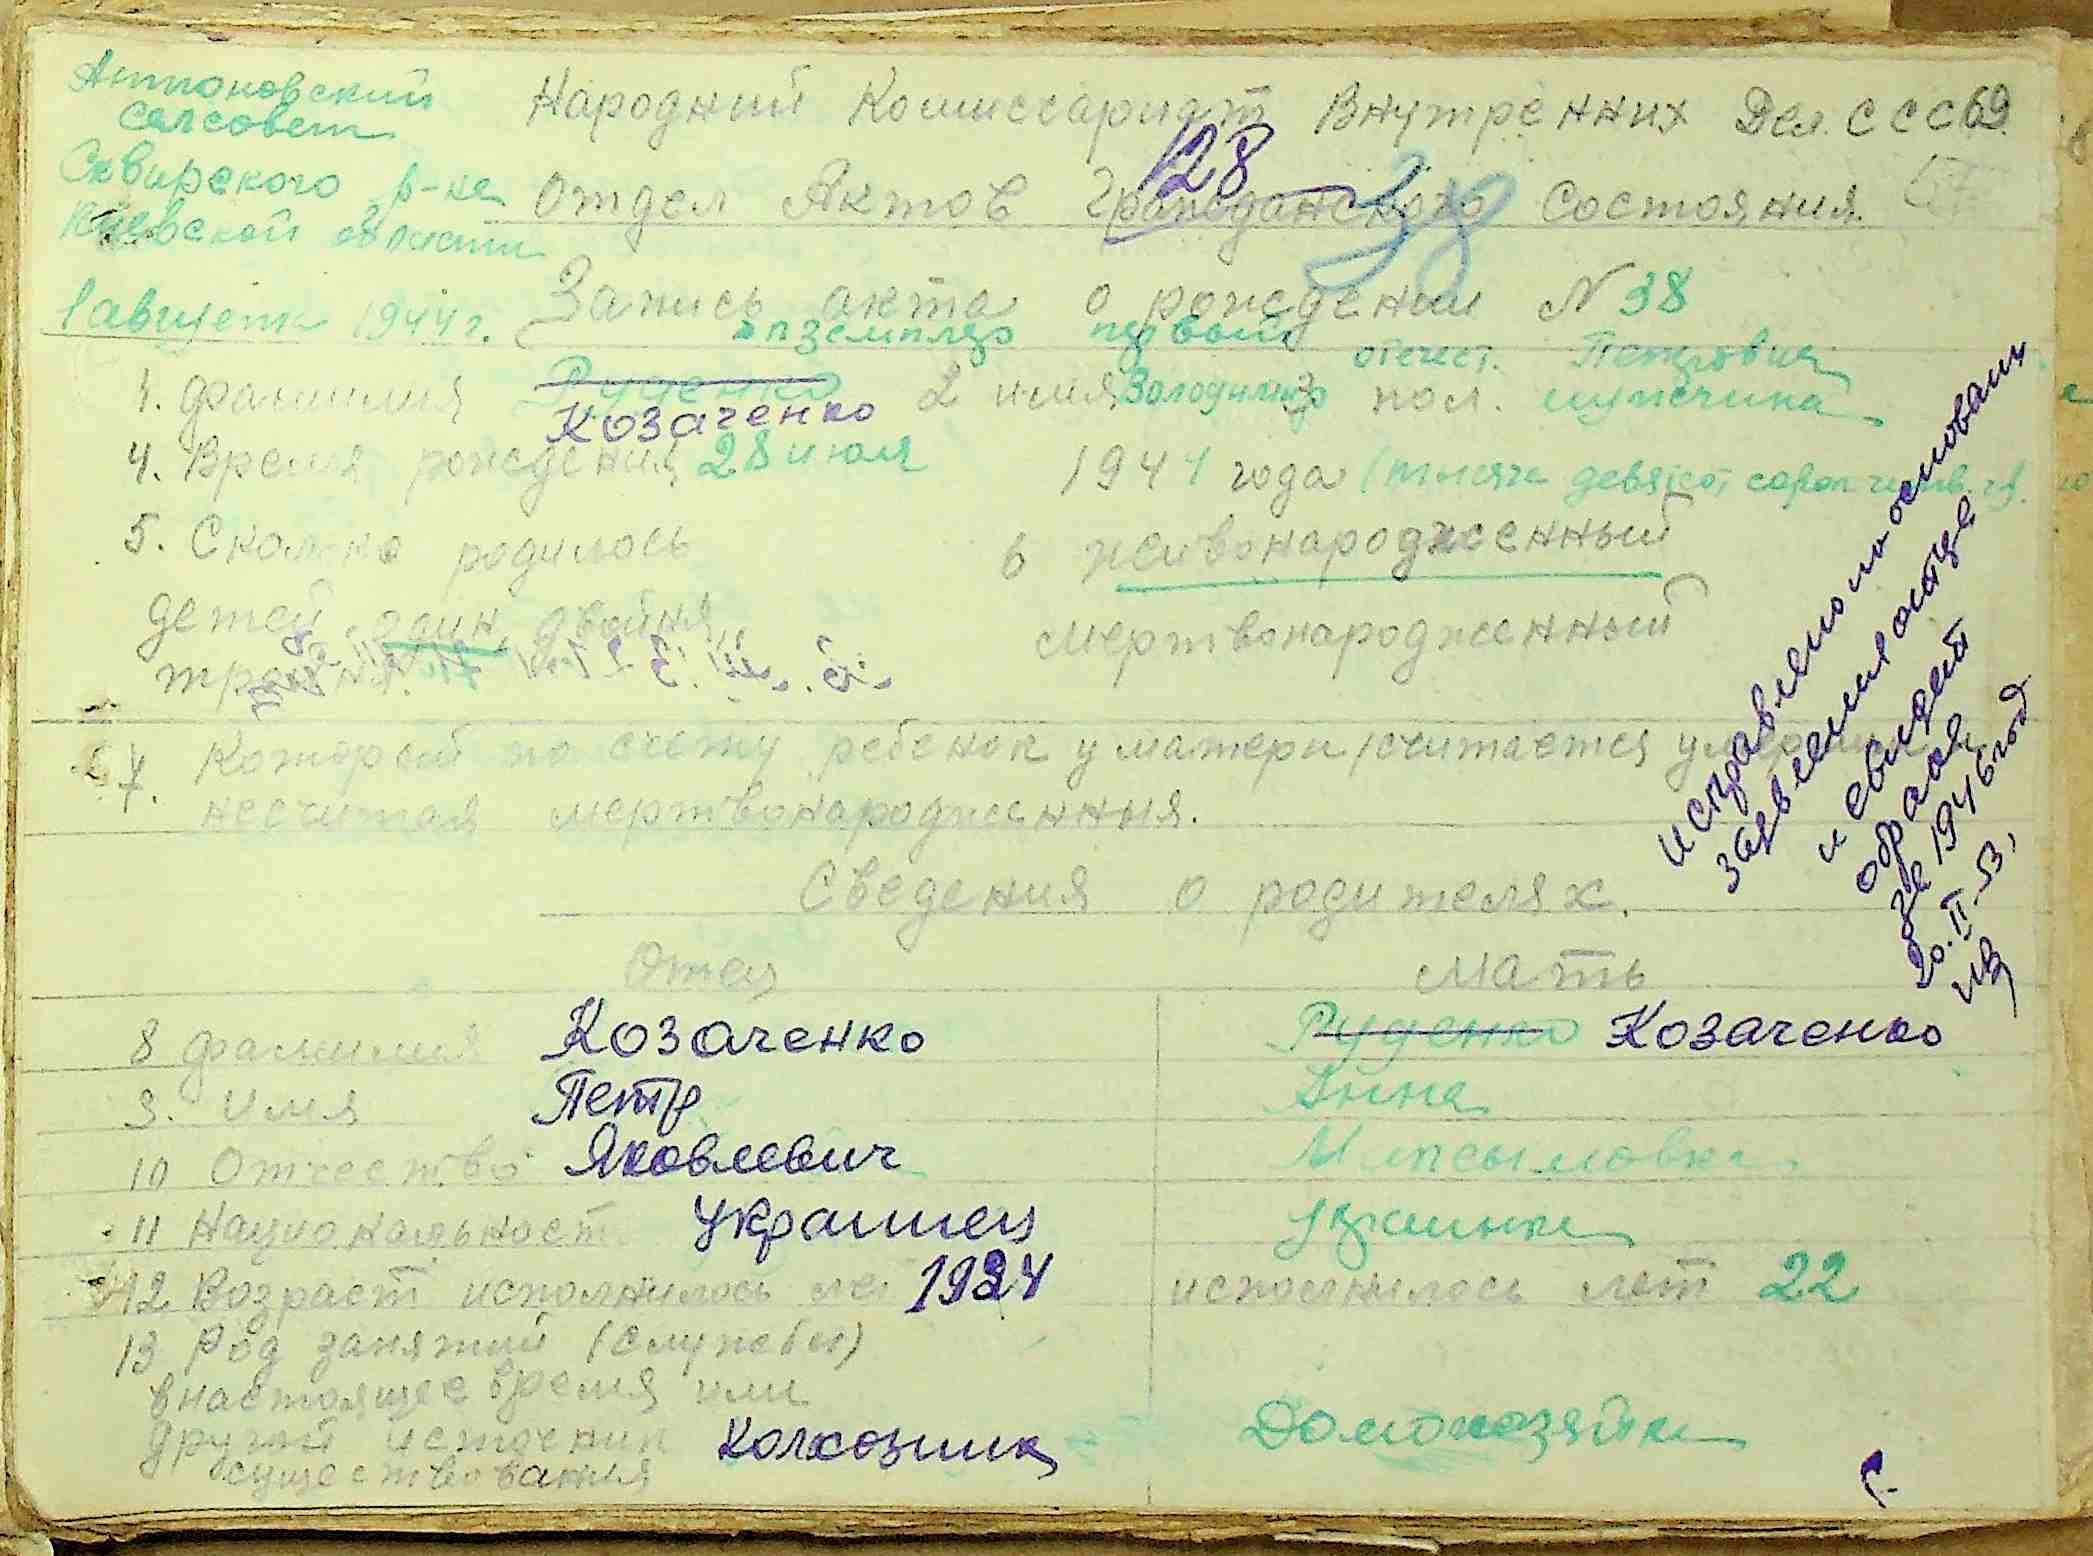 Антоновский
сельсовет
Сквирского р-на
Киевской области
1 августа 1944 г.
Народний Комиссариат Внутренних Дел СССР
69
128
Отдел Актов Гражданского Состояния.
38
Запись акта о рождении N 38
экземпляр первый
1. фамилия Руденко 2 имя Володимир 3 пол. мужчина
отчест. Петрович
Козаченко
4. Время рождения 28 июля 1944 года (тысяча девятсот сорок четв.
5. Сколько родилось
детей один двойня
тройня.
6 живонародженный
мертвонародженный
7. Которий по счету ребенок у матери (считается
несчитая мертвонародженния.
исправлено на основании
заявления отца
и свидет
о браке
за 1946 год
20.II.53,
Сведения о родителях.
Отец Мать
8 фамилия Козаченко Руденко Козаченко
9. Имя Петр Анна
10 Отчество Яковлевич
11 Национальност. Украинец украинка
12 Возраст исполнилось лет 1924 исполнилось лет 22
13 Род занятий (службы)
в настоящее время или
другой источник Колхозник Домохозяйка
существования